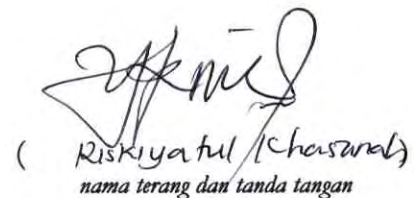 ( Riskiyatul Khasanah)
nama terang dan tanda tangan